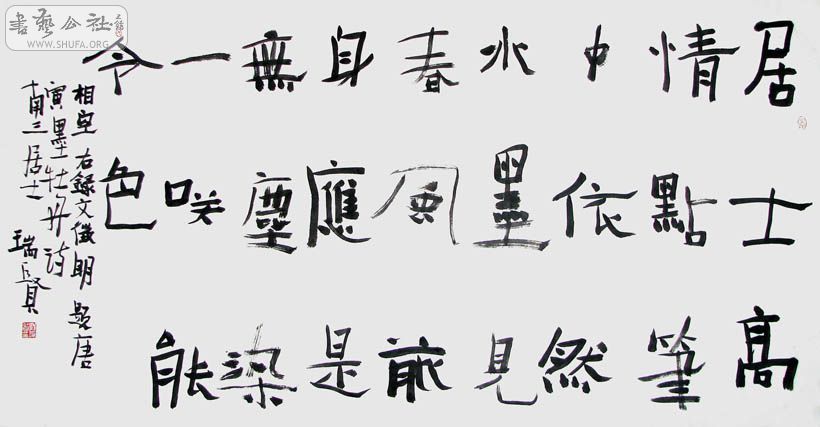 書藝公社
WWW.SHUFA.ORG
居士高
情點筆
中依然
水墨見
春風前
身應是
無塵染
一咲能
令色
相空 右錄文徵明題唐
寅墨牡丹詩
三居士 瑞賢